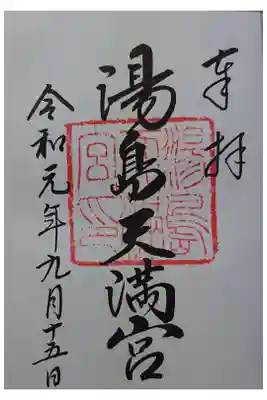 奉拝
湯島天満宮
令和元年九月十五日